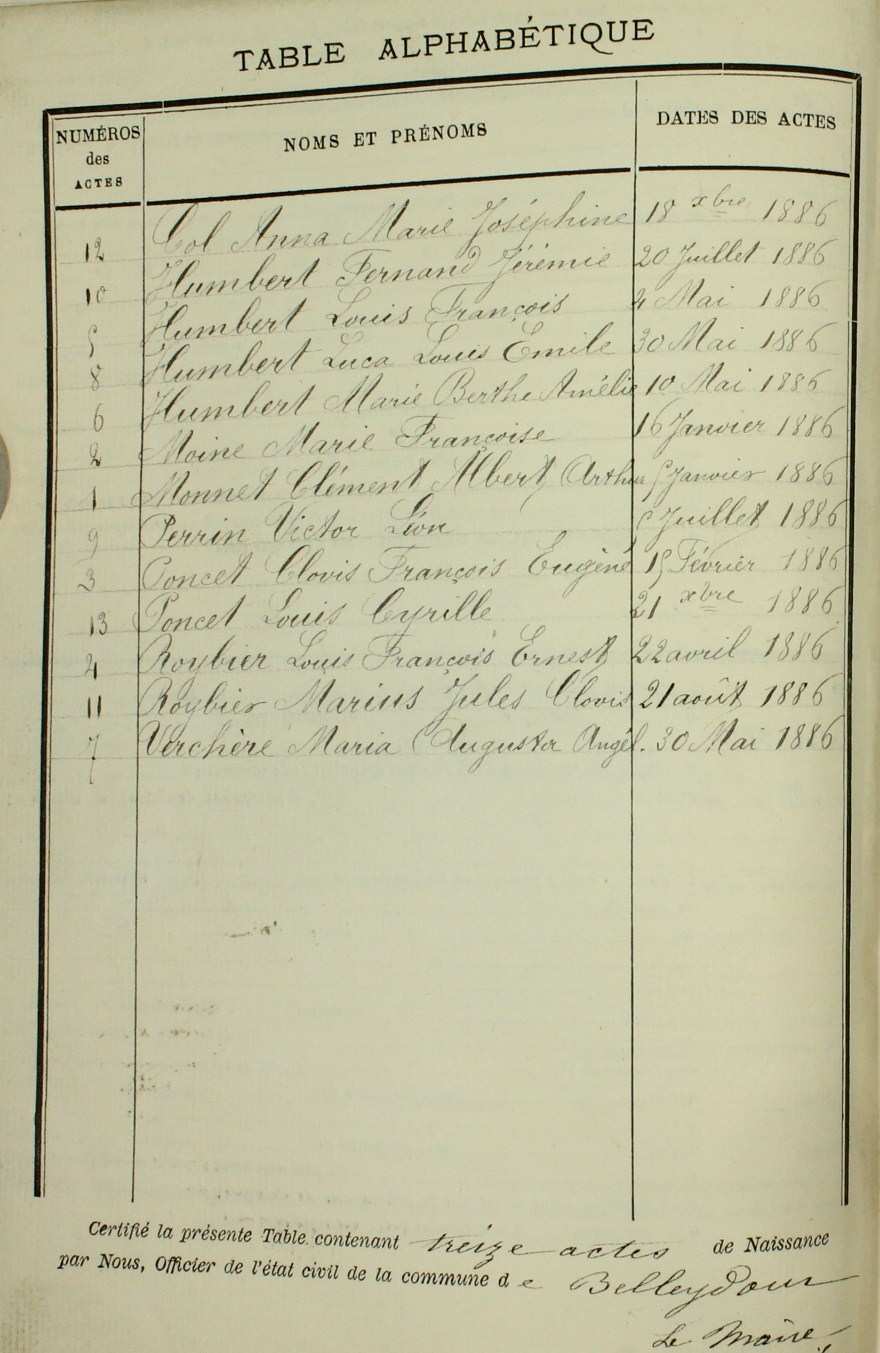 TABLE ALPHABÉTIQUE
NUMÉROS des ACTES NOMS ET PRÉNOMS DATES DES ACTES
12 Col Anna Marie Joséphine 18 xbre 1886
10 Humbert Fernand Jérémie 20 Juillet 1886
5 Humbert Louis François 4 Mai 1886
8 Humbert Luca Louis Emile 30 Mai 1886
6 Humbert Marie Berthe Amélie 10 Mai 1886
2 Moine Marie Françoise 16 Janvier 1886
1 Monnet Clément Albert Arthur 5 Janvier 1886
9 Perrin Victor Léon Juillet 1886
3 Poncet Clovis François Eugéné 15 Février 1886
13 Poncet Louis Cyrille 21 xbre 1886
4 Roybier Louis François Ernest 22 avril 1886
11 Roybier Marius Jules Clovis 21 août 1886
7 Verchère Maria Augusta Angél. 30 Mai 1886
Certifié la présente Table contenant treize actes de Naissance
par Nous, Officier de l'état civil de la commune de Belleydoux
Le Maire,